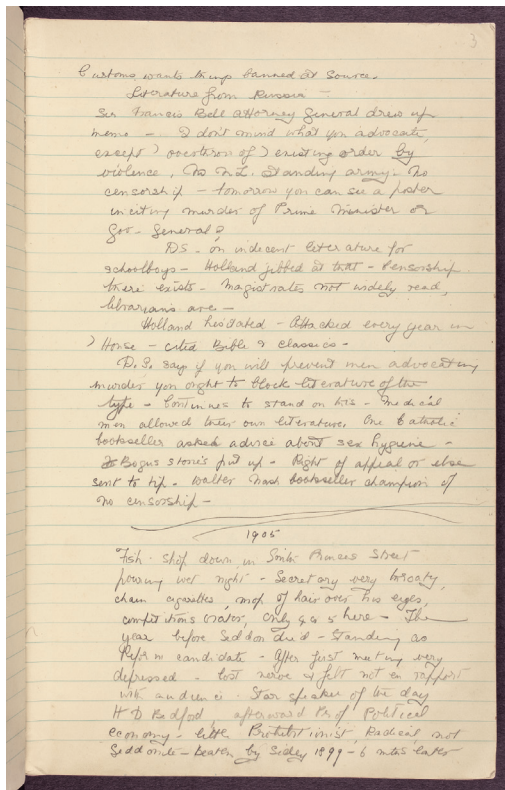 3
Customs wants things banned at source.
Literature from Russia —
Sir Francis Bell Attorney General drew up
memo — I don't mind what you advocate,
except ) overthrow of ) existing order by
violence, No N.Z. Standing army — No
censorship — tomorrow you can see a poster
inciting murder of Prime Minister or
Gov - General?
DS - on indecent literature for
schoolboys — Holland jibbed at that — Censorship
there exists — magistrates not widely read,
librarians are —
Holland hesitated — Attacked every year in
) House — cited Bible & classics —
D.S. says if you will prevent men advocating
murder you ought to block literature of the
type — Continues to stand on his — medical
men allowed their own literature. One Catholic
bookseller asked advice about sex hygiene —
Bogus stories put up — Right of appeal or else
sent to tip — Walter Nash bookseller champion of
no censorship —
1905
Fish - shop down in South Princes Street
pouring wet night — Secretary very
chain cigarettes, mop of hair over his eyes,
competitions orator, only 4 or 5 here — The
year before Seddon died — Standing as
Reform candidate — After first meeting very
depressed — lost nerve & felt not en rapport
with audience — Star speaker of the day
H D Bedford, afterward Prof Political
economy — little Prohibitionist, Radical not
Seddonite — beaten by Sidey 1899 — 6 mths later